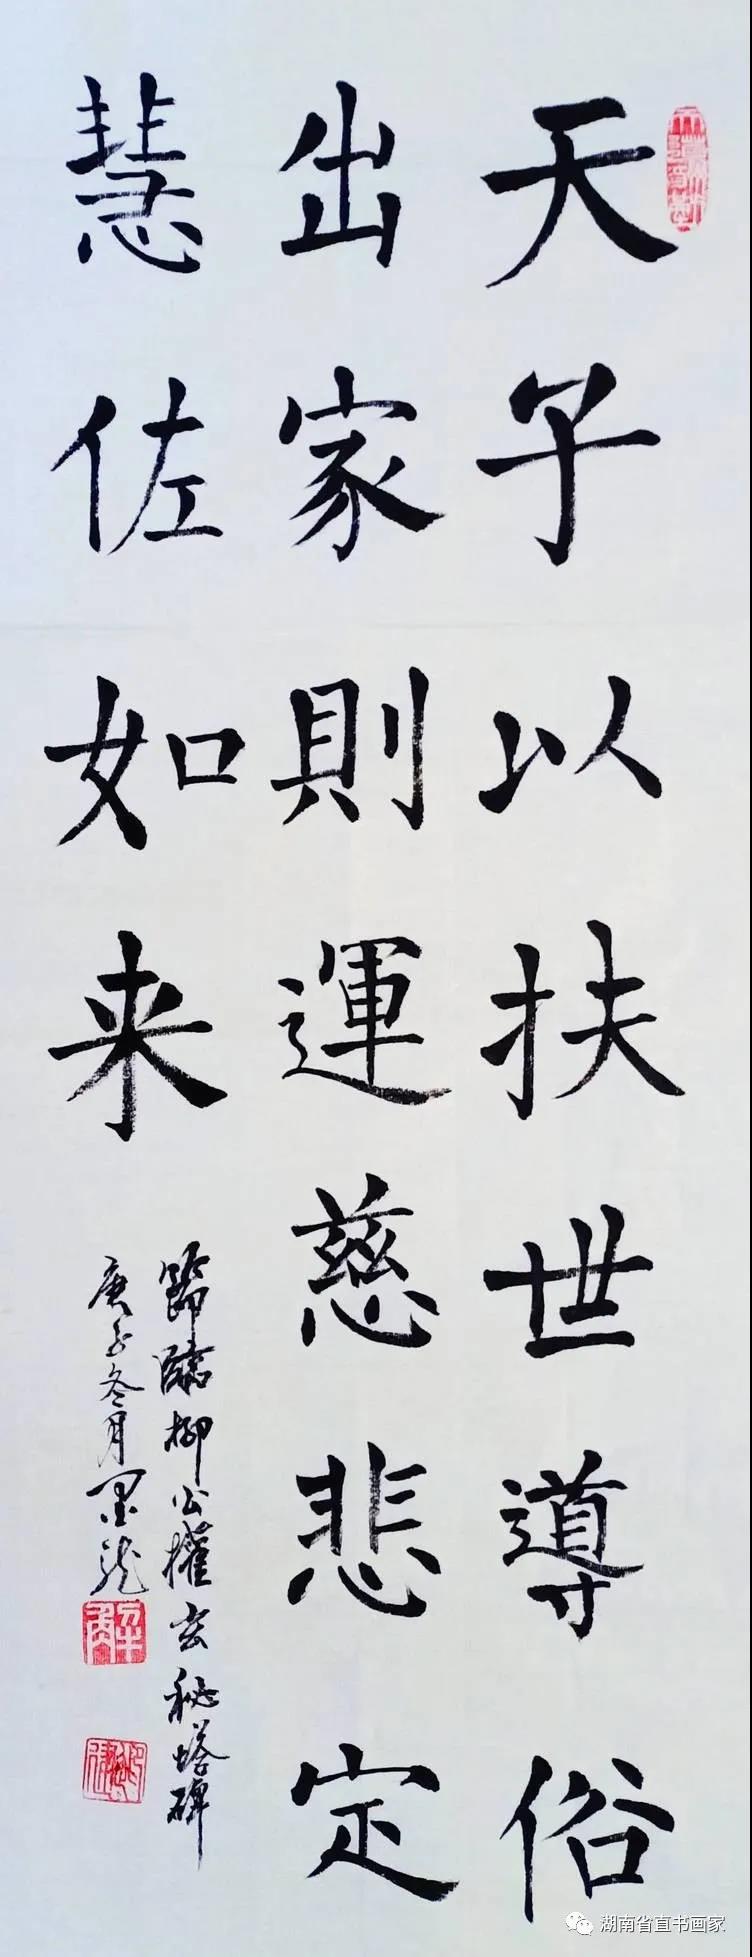 天子以扶世導俗
出家則運慈悲定
慧佐如来
節臨柳公權玄秘塔碑
庚子冬月墨龙
湖南省直书画家